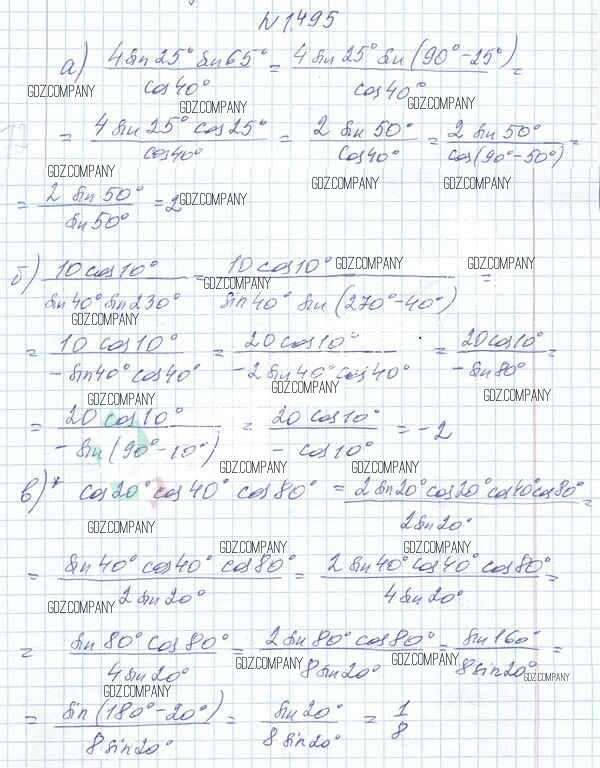 № 1.495
а) (4 sin 25° sin 65°)/(cos 40°) = (4 sin 25° sin (90° - 25°))/(cos 40°) =
GDZ.COMPANY GDZ.COMPANY GDZ.COMPANY
= (4 sin 25° cos 25°)/(cos 40°) = (2 sin 50°)/(cos 40°) = (2 sin 50°)/(cos (90° - 50°)) =
GDZ.COMPANY GDZ.COMPANY GDZ.COMPANY
= (2 sin 50°)/(sin 50°) = 2 GDZ.COMPANY
б) (10 cos 10°)/(sin 40° sin 230°) = (10 cos 10°)/(sin 40° sin (270° - 40°)) =
GDZ.COMPANY GDZ.COMPANY GDZ.COMPANY GDZ.COMPANY
= (10 cos 10°)/(- sin 40° cos 40°) = (20 cos 10°)/(- 2 sin 40° cos 40°) = (20 cos 10°)/(- sin 80°) =
GDZ.COMPANY GDZ.COMPANY GDZ.COMPANY
= (20 cos 10°)/(- sin (90° - 10°)) = (20 cos 10°)/(- cos 10°) = -2
GDZ.COMPANY GDZ.COMPANY
в)* cos 20° cos 40° cos 80° = (2 sin 20° cos 20° cos 40° cos 80°)/(2 sin 20°) =
GDZ.COMPANY GDZ.COMPANY GDZ.COMPANY
= (sin 40° cos 40° cos 80°)/(2 sin 20°) = (2 sin 40° cos 40° cos 80°)/(4 sin 20°) =
GDZ.COMPANY
= (sin 80° cos 80°)/(4 sin 20°) = (2 sin 80° cos 80°)/(8 sin 20°) = (sin 160°)/(8 sin 20°) =
GDZ.COMPANY GDZ.COMPANY GDZ.COMPANY GDZ.COMPANY
= (sin (180° - 20°))/(8 sin 20°) = (sin 20°)/(8 sin 20°) = 1/8